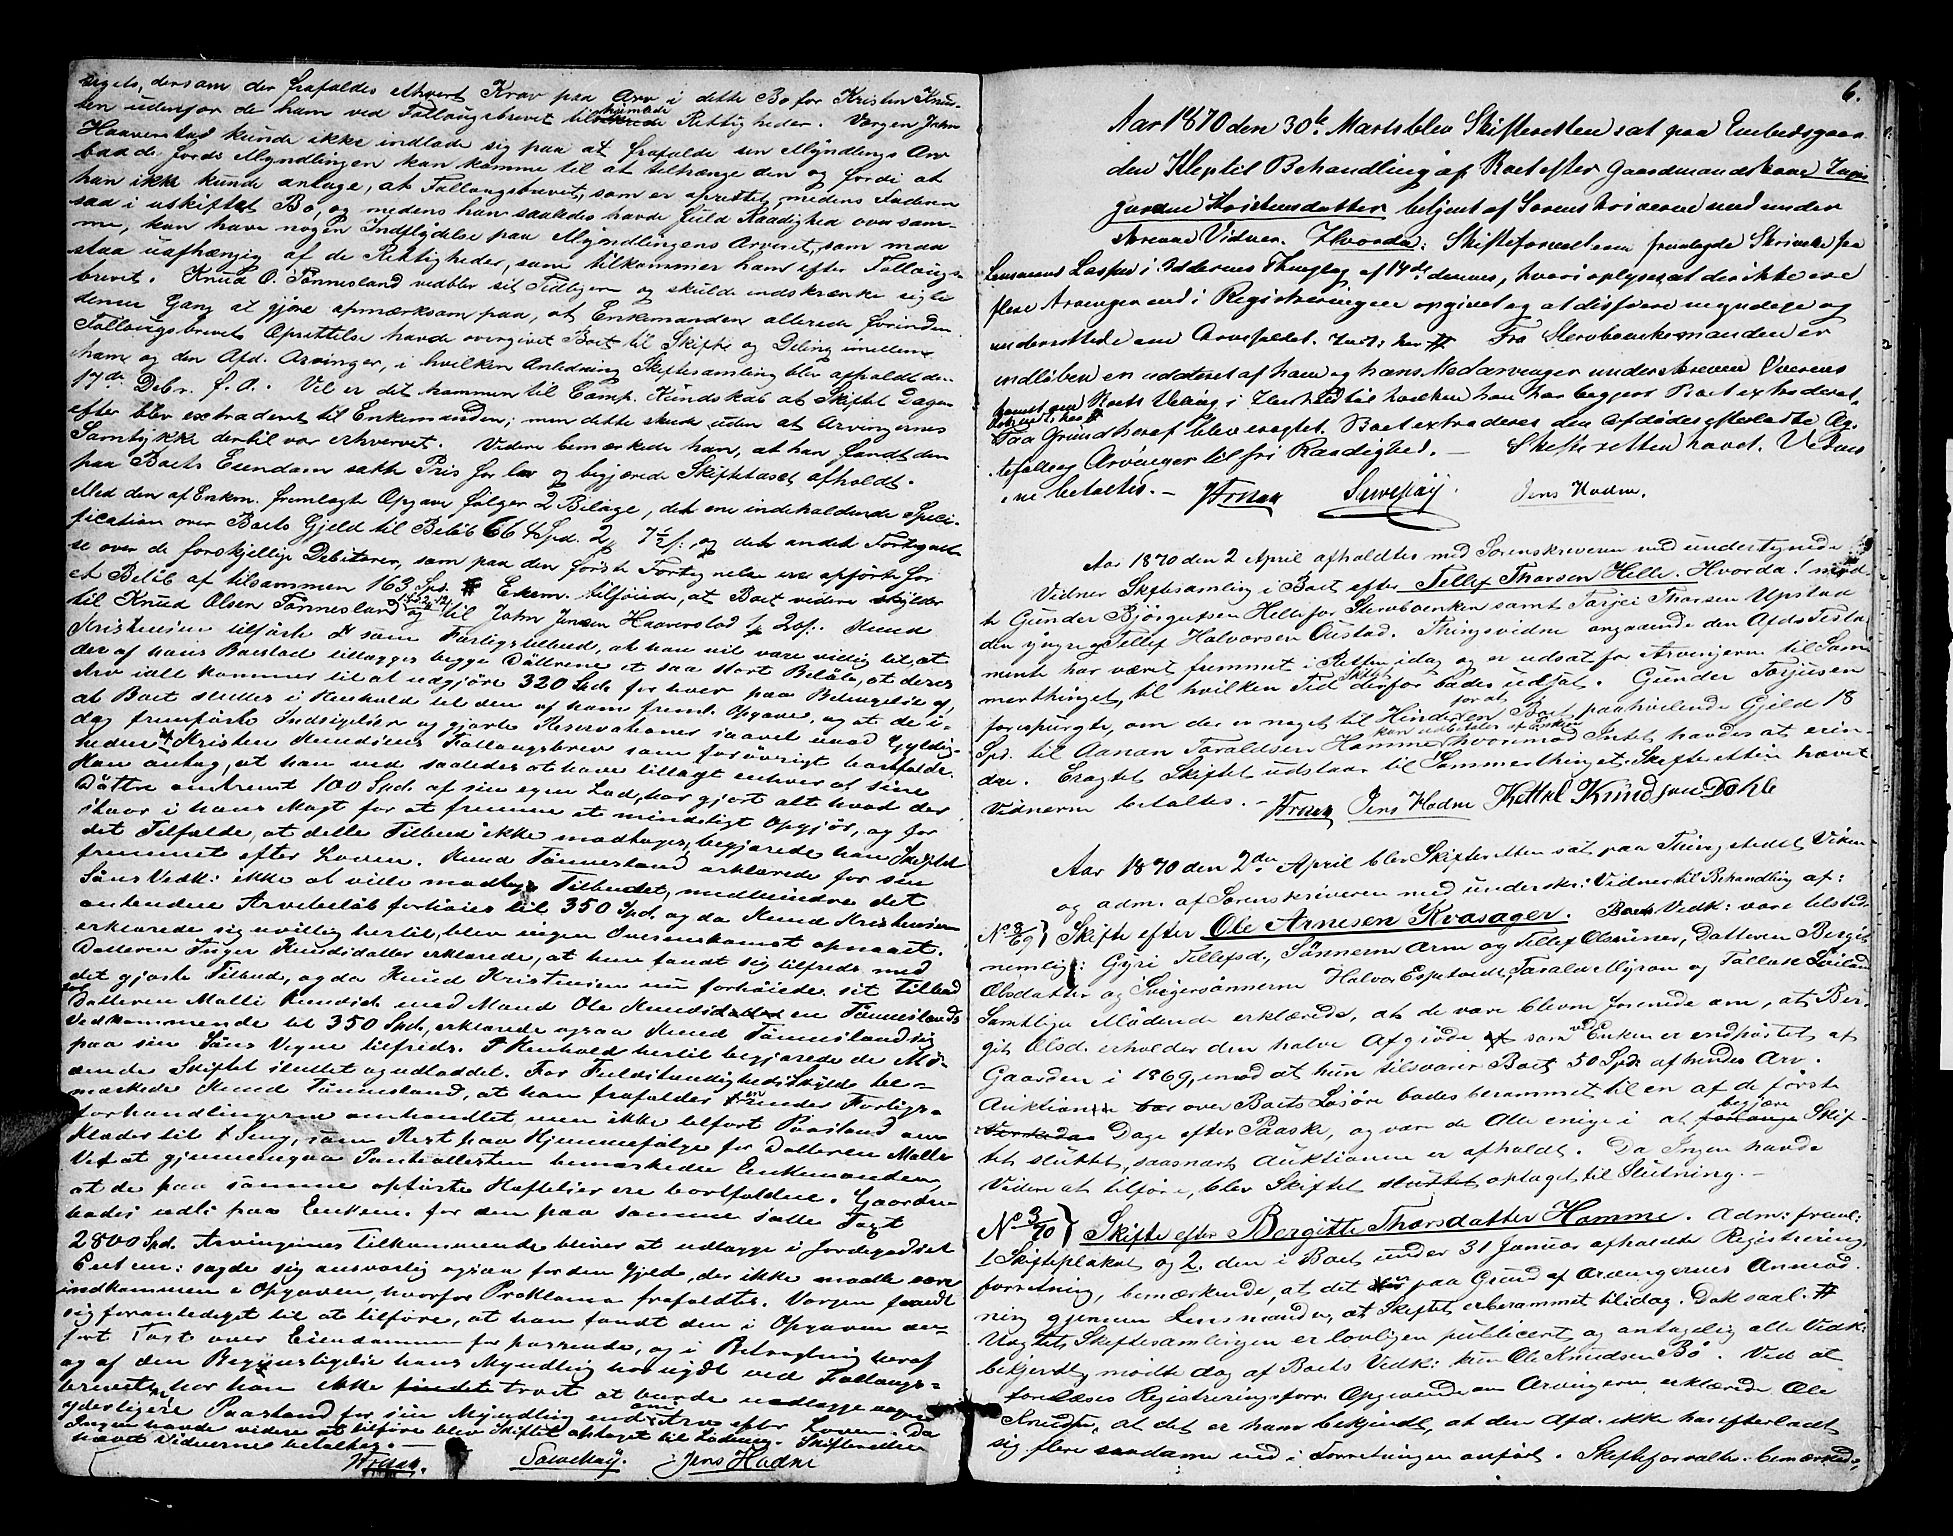 sigels, dersom der frafaldes ethvert Krav paa Arv i dette Bo for Kristen Knud-
sen udenfor de ham ved Follaugsbrevet tilkomne Rettigheder. Vargen John
Haaverstad kunde ikke indlade sig paa at frafalde sin Myndlings Arv
baade fordi Myndlingen kan komme til at tiltrænge den og fordi at
han ikke kunde antage, at Follaugsbrevet, som er oprettet, medens Faderen
sad i uskiftet Bo, og medens han saaledes havde fuld Raadighed over sam-
me, kan have nogen Indflydelse paa Myndlingens Arveret, som maa
staa uafhængig af de Rettigheder, som tilkommer ham efter Follaugs-
brevet. Knud O. Tønnesland vedblev sit Tidligere og skulde indskrænke sig til
denne Gang at gjøre opmærksom paa, at Enkemanden allerede forinden
Follaugsbrevets Oprettelse havde overgivet Boet til Skifte og Deling imellem
ham og den Afd. Arvinger, i hvilken Anledning Skiftesamling blev afholdt den
17de Debr. f. A. Vel er det kommen til Comp. Kundskab at Skiftet Dagen
efter blev extraderet til Enkemanden; men dette skede uden at Arvingernes
Samtykke dertil var erhvervet. Videre bemærkede han, at han fandt den
paa Boets Eiendom satte Pris for lav og begjærede Skiftetaxt afholdt.
Med den af Enkem. fremlagte Opgave følger 2 Bilage, det ene indeholdende Speci-
fication over Boets Gjeld til Beløb 664 Spd. 2 „ 7½ s. og det andet Fortegnel-
se over de forskjellige Debitorer, som paa den første Fortegnelse ere opførte for
et Beløb af tilsammen 163 Spd. # Enkem. tilføiede, at Boet videre skylder
til Knud Olsen Tønnesland og til John Jensen Haaverstad 1/„ 20 s. Knud
Kristensen tilførte at som Forligstilbud, at han vil være villig til, at
der af hans Boeslod tillægges begge Døttrene et saa stort Beløb, at deres
Arv ialt kommer til at udgjøre 320 Spd. for hver paa Betingelse af,
at Boet sluttes i Henhold til den af ham freml. Opgave, og at de i-
dag fremførte Indsigelser og gjorte Reservationer saavel mod Gyldig-
heden af Kristen Knudsens Follaugsbrev som forøvrigt bortfalde.
Han antog, at han ved saaledes at have tillagt enhver af sine
Døttre omtrent 100 Spd. af sin egen Lod, har gjort alt hvad der
staar i hans Magt for at fremme et mindeligt Opgjør, og for
det Tilfælde, at dette Tilbud ikke modtages, begjærede han Skiftet
fremmet efter Loven. Knud Tønnesland erklærede for sin
Søns Vedk: ikke at ville modtage Tilbudet, medmindre det
anbudne Arvebeløb forhøies til 350 Spd. og da Knud Kristensen
erklærede sig uvillig hertil, blev ingen Overenskomst opnaaet.
Datteren Inger Knudsdatter erklærede, at hun fandt sig tilfreds med
det gjorte Tilbud, og da Knud Kristensen nu forhøiede sit Tilbud
for Datteren Malli Knudsd. med Mand Ole Knudsen Tønneslands
Vedkommende til 350 Spd., erklærede ogsaa Knud Tønnesland sig
paa sin Søns Vegne tilfreds. I Henhold hertil begjærede de Mø-
dende Skiftet sluttet og udloddet. For Fuldstændigheds Skyld be-
mærkede Knud Tønnesland, at han frafalder under Forligs-
forhandlingerne omhandlet men ikke tilført Paastand om
Klæder til 1 Seng, som Rest paa Hjemmefølge for Datteren Malli
Ved at gjennemgaa Panteattesten bemærkede Enkemanden,
at de paa samme opførte Heftelser ere bortfaldne. Gaarden
bades udl: paa Enkem: for den paa samme satte Taxt
2800 Spd. Arvingernes Tilkommende bliver at udlægge i Jordegodset
Enkem: sagde sig ansvarlig ogsaa for den Gjeld, der ikke maatte være
indkommen i Opgaven, hvorfor Proklama frafaldtes. Vargen fandt
sig foranlediget til at tilføre, at han fandt den i Opgaven an-
ført Taxt over Eiendommen for passende, og i Betragtning heraf
og af den Begunstigelse hans Myndling har nydt ved Follaugs-
brevet, har han ikke troet at burde nedlægge nogen
yderligere Paastand for sin Myndling end om Arv efter Loven. Da
Ingen havde videre at tilføre blev Skiftet optaget til Lodning. Skifteretten
hævet Vidnerne betaltes.
Salve Røy. Jens Hodne
6.
Aar 1870 den 30te Marts blev Skifteretten sat paa Embedsgaar-
den Klep til Behandling af Boet efter Gaardmandskone Inge-
gjerdne Kristensdatter betjent af Sorenskriveren med under-
skrevne Vidner. Hvorda: Skifteforvalteren fremlagde Skrivelse fra
Lensmand Løspes i Odderens Thinglag af 14de dennes, hvori oplyses, at der ikke ere
flere Arvinger end i Registreringen opgivet og at disse ere myndige og
underrettede om Arvefaldet. Indt: her # Fra Stervboenkemanden er
indløben en udateret af ham og hans Medarvinger underskreven Overens-
komst om Boets Deling i Henhold til hvilken han har begjært Boet extraderet.
Paa Grund heraf blev eragtet. Boet extraderes den Afdødes efterladte Æg-
tefælle og Arvinger til fri Raadighed. — Skifteretten hævet. Vidner-
ne betaltes. — Salve Røy. Jens Hodne.
Aar 1870 den 2 April afholdtes med Sorenskriveren ved undertegnede
Vidner Skiftesamling i Boet efter Tellef Thorsen Helle. Hvorda! mød-
te Gunder Bjørgufsen Helle for Stervboenken samt Torjei Thorsen Upstad
den yngre og Tellef Halvorsen Oustad. Thingsvidne angaaende den Afds Testa-
mente har været fremmet i Retten idag og er udsat for Arvingerne til Som-
merthinget, til hvilken Tid Skiftet derfor bades udsat. Gunder Torjusen
forespurgte, om der er noget til Hinder for at den Boet paahvilende Gjeld 18
Spd. til Aanan Taraldsen Homme kan udbetales af Enken, hvorimod Intet havdes at erin-
dre. Eragtet Skiftet udstaar til Sommerthinget, Skifteretten hævet
Vidnerne betaltes. — Jens Hodne Kettel Knudsen Dahle
Aar 1870 den 2den April blev Skifteretten sat paa Thingstedet Viken
og adm. af Sorenskriveren med underskr: Vidner til Behandling af:
No 3/69} Skifte efter Ole Arnesen Kvasager. Boets Vedk: vare tilsted
nemlig: Gyri Tellefsd., Sønnerne Arne og Tellef Olssønner, Datteren Bergit
Olsdatter og Svigersønnerne Halvor Espetvedt, Tarald Myran og Tallak Loiland
Samtlige Mødende erklærede, at de vare blevne forenede om, at Ber-
git Olsd. erholder den halve Afgrøde som ved Enken er endhøstet af
Gaarden i 1869, imod at hun tilsvarer Boet 50 Spd. af hendes Arv.
Auktion over Boets Løsøre bades berammet til en af de første
Dage efter Paaske, og vare de Alle enige i at begjære Skif-
tet sluttet, saasnart Auktionen er afholdt. Da Ingen havde
Videre at tilføre, blev Skiftet optaget til Slutning. —
No 3/70} Skifte efter Bergitte Thorsdatter Homme. Adm: freml:
1 Skifteplakat og 2, den i Boet under 31 Januar afholdte Registrering
forretning, bemærkende, at det er paa Grund af Arvingernes Anmod-
ning gjennem Lensmanden, at Skiftet er berammet til idag. Dok saal. #
Uagtet Skiftesamlingen er lovligen publicert og antagelig alle Vedk:
bekjendt, mødte dog af Boets Vedk: kun Ole Knudsen Bø. Ved at
forelæses Registreringsforr: Opgivende om Arvingerne erklærede Ole
Knudsen, at det er ham bekjendt, at den Afd. ikke har efterladt
sig flere saadanne end i Forretningen anført. Skifteforvalt. bemærkede,